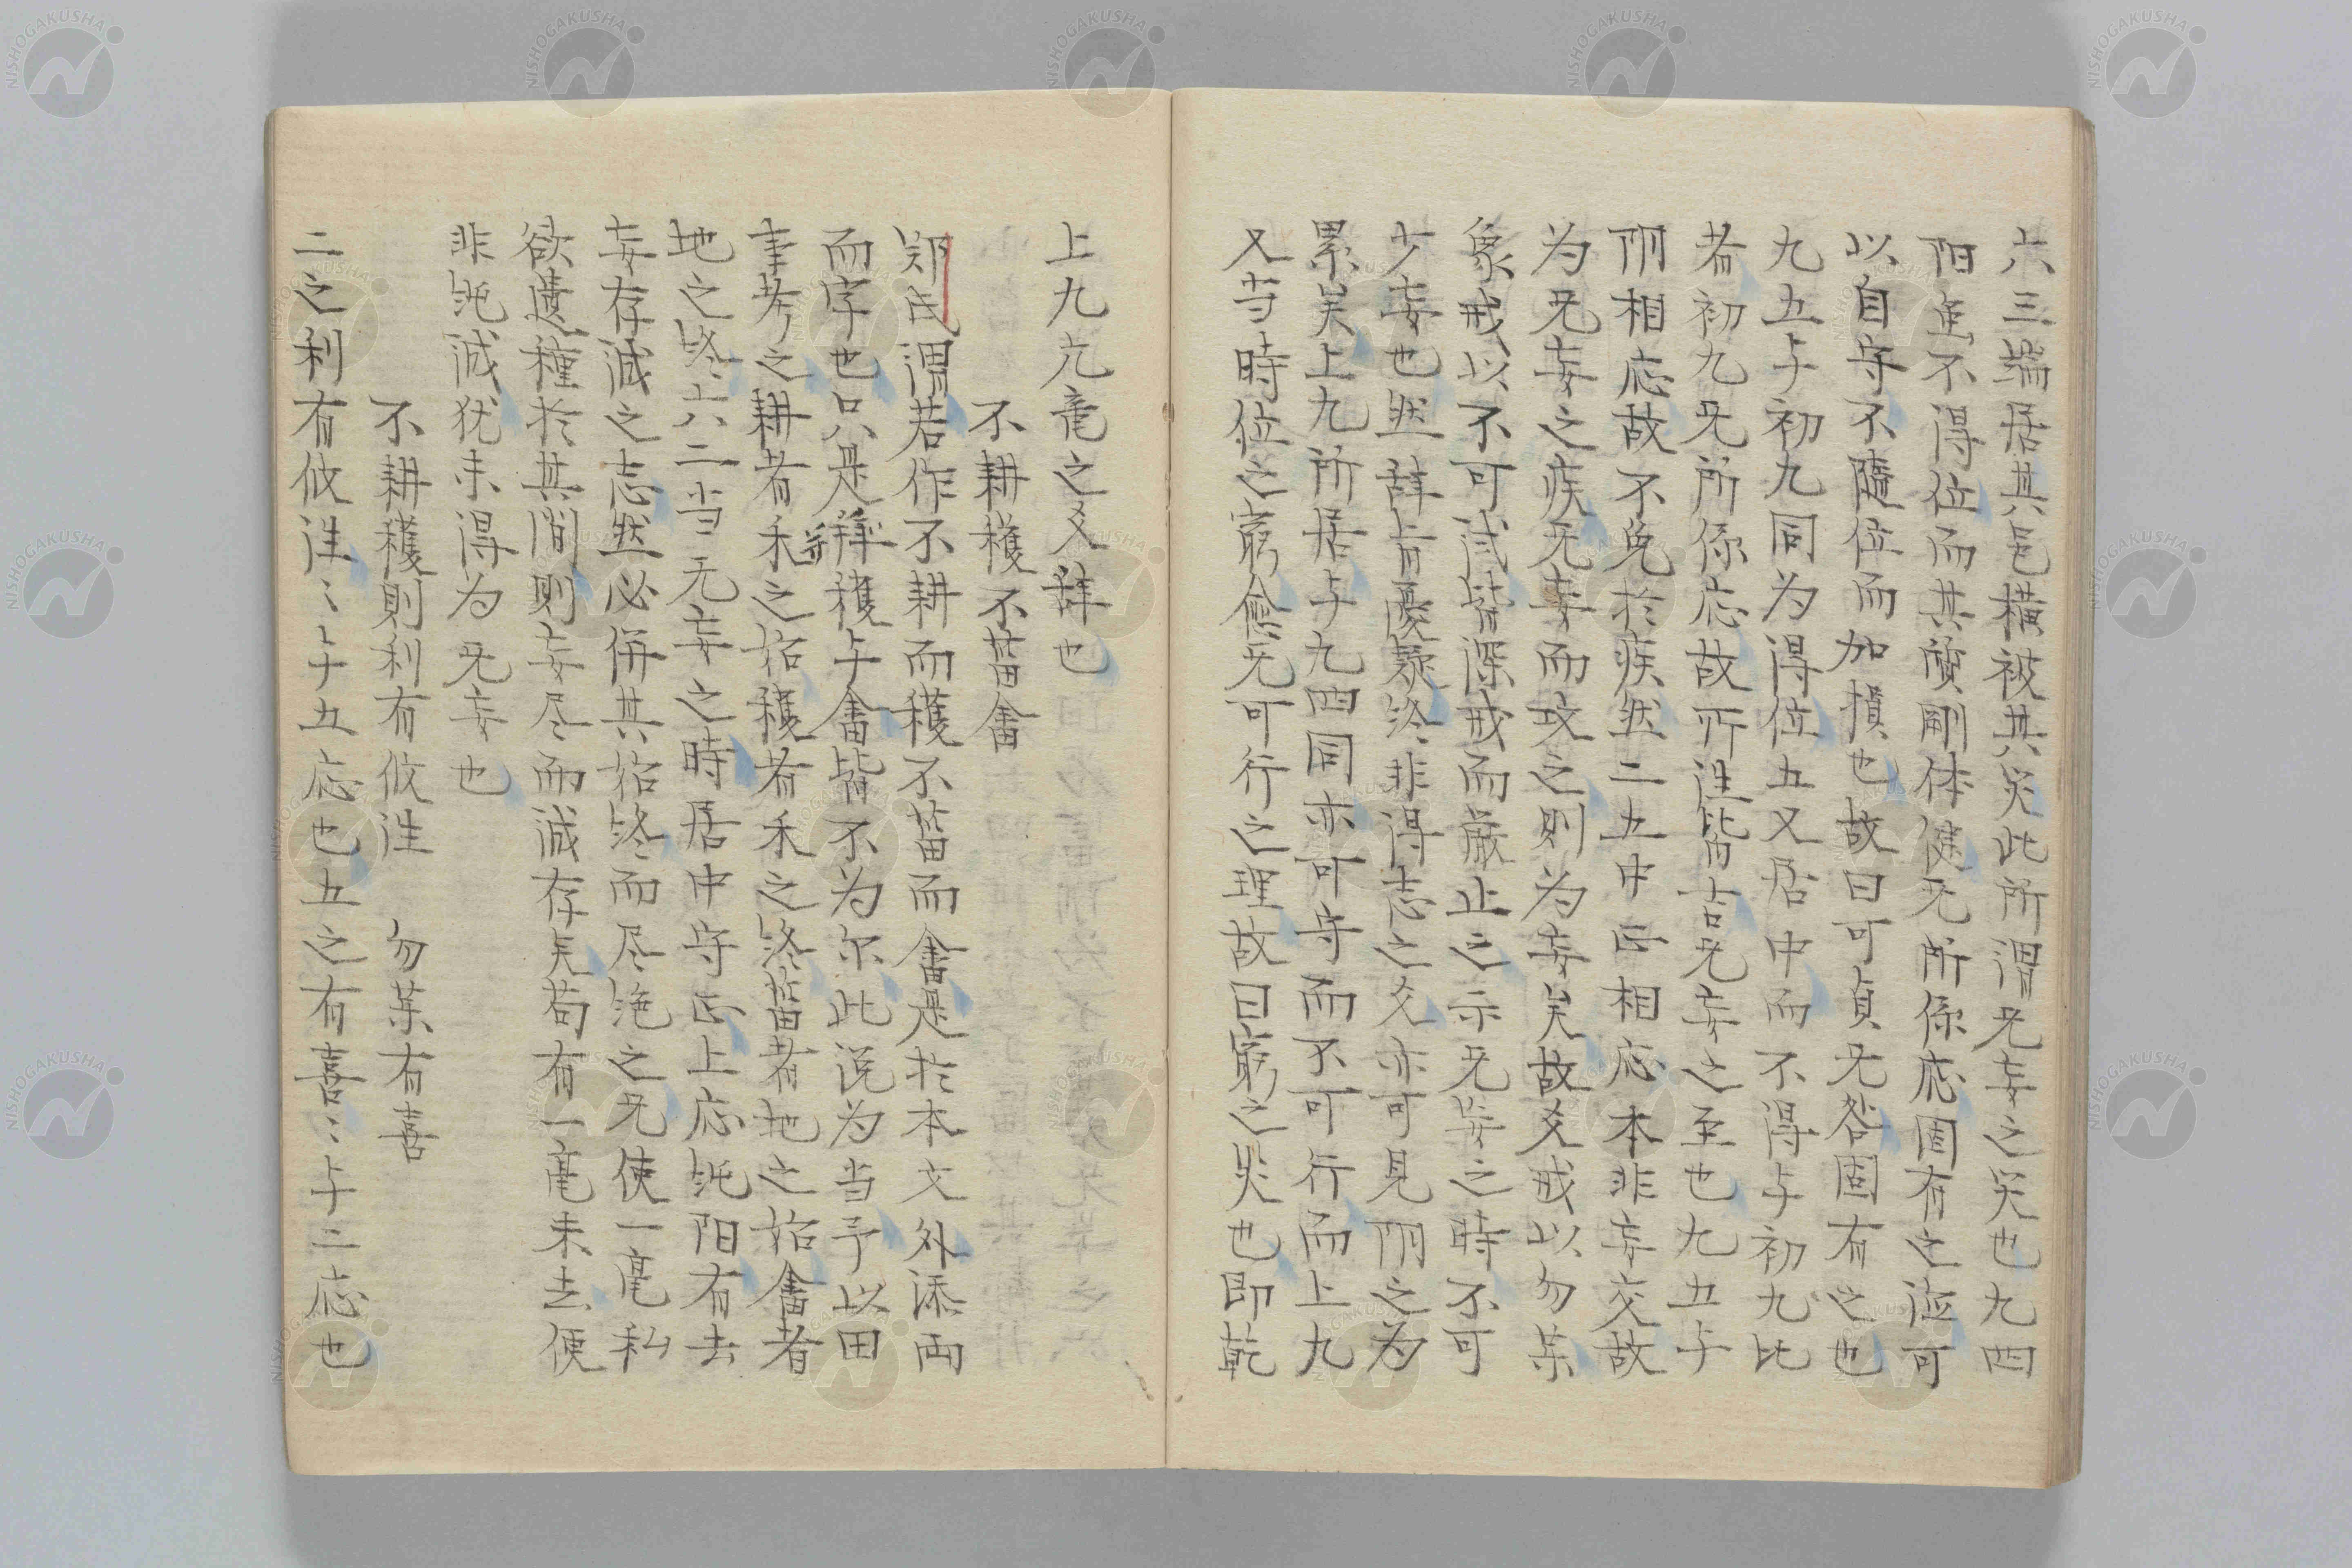 六三端居其邑横被其災此所謂无妄之災也九四
阳進不得位而其質剛体健无所係応固有之位可
以自守不隨位而加損也故曰可貞无咎固有之也
九五与初九同为得位五又居中而不得与初九比
者初九无所係応故所往皆吉无妄之至也九五与
阴相応故不免於疾然二五中正相応本非妄交故
为无妄之疾无妄而攻之則为妄矣故爻戒以勿薬
象戒以不可試皆深戒而厳止之示无妄之時不可
少妄也然辞旨憂疑終非得志之爻亦可見阴之为
累矣上九所居与九四同亦可守而不可行而上九
又当時位之窮愈无可行之理故曰窮之災也即乾
上九亢竜之爻辞也
不耕穫不菑畬
郑氏謂若作不耕而穫不菑而畬是於本文外添両
而字也只是穫与畬皆不为尔此说为当予以田
事考之耕者禾之始穫者禾之終菑者地之始畬者
地之終六二当无妄之時居中守正上応純阳有去
妄存诚之志然必併其始終而尽绝之无使一毫私
欲遺種於其間則妄尽而诚存矣苟有一毫未去便
非純诚犹未得为无妄也
不耕穫則利有攸往　勿薬有喜
二之利有攸往〻与五応也五之有喜〻与二応也